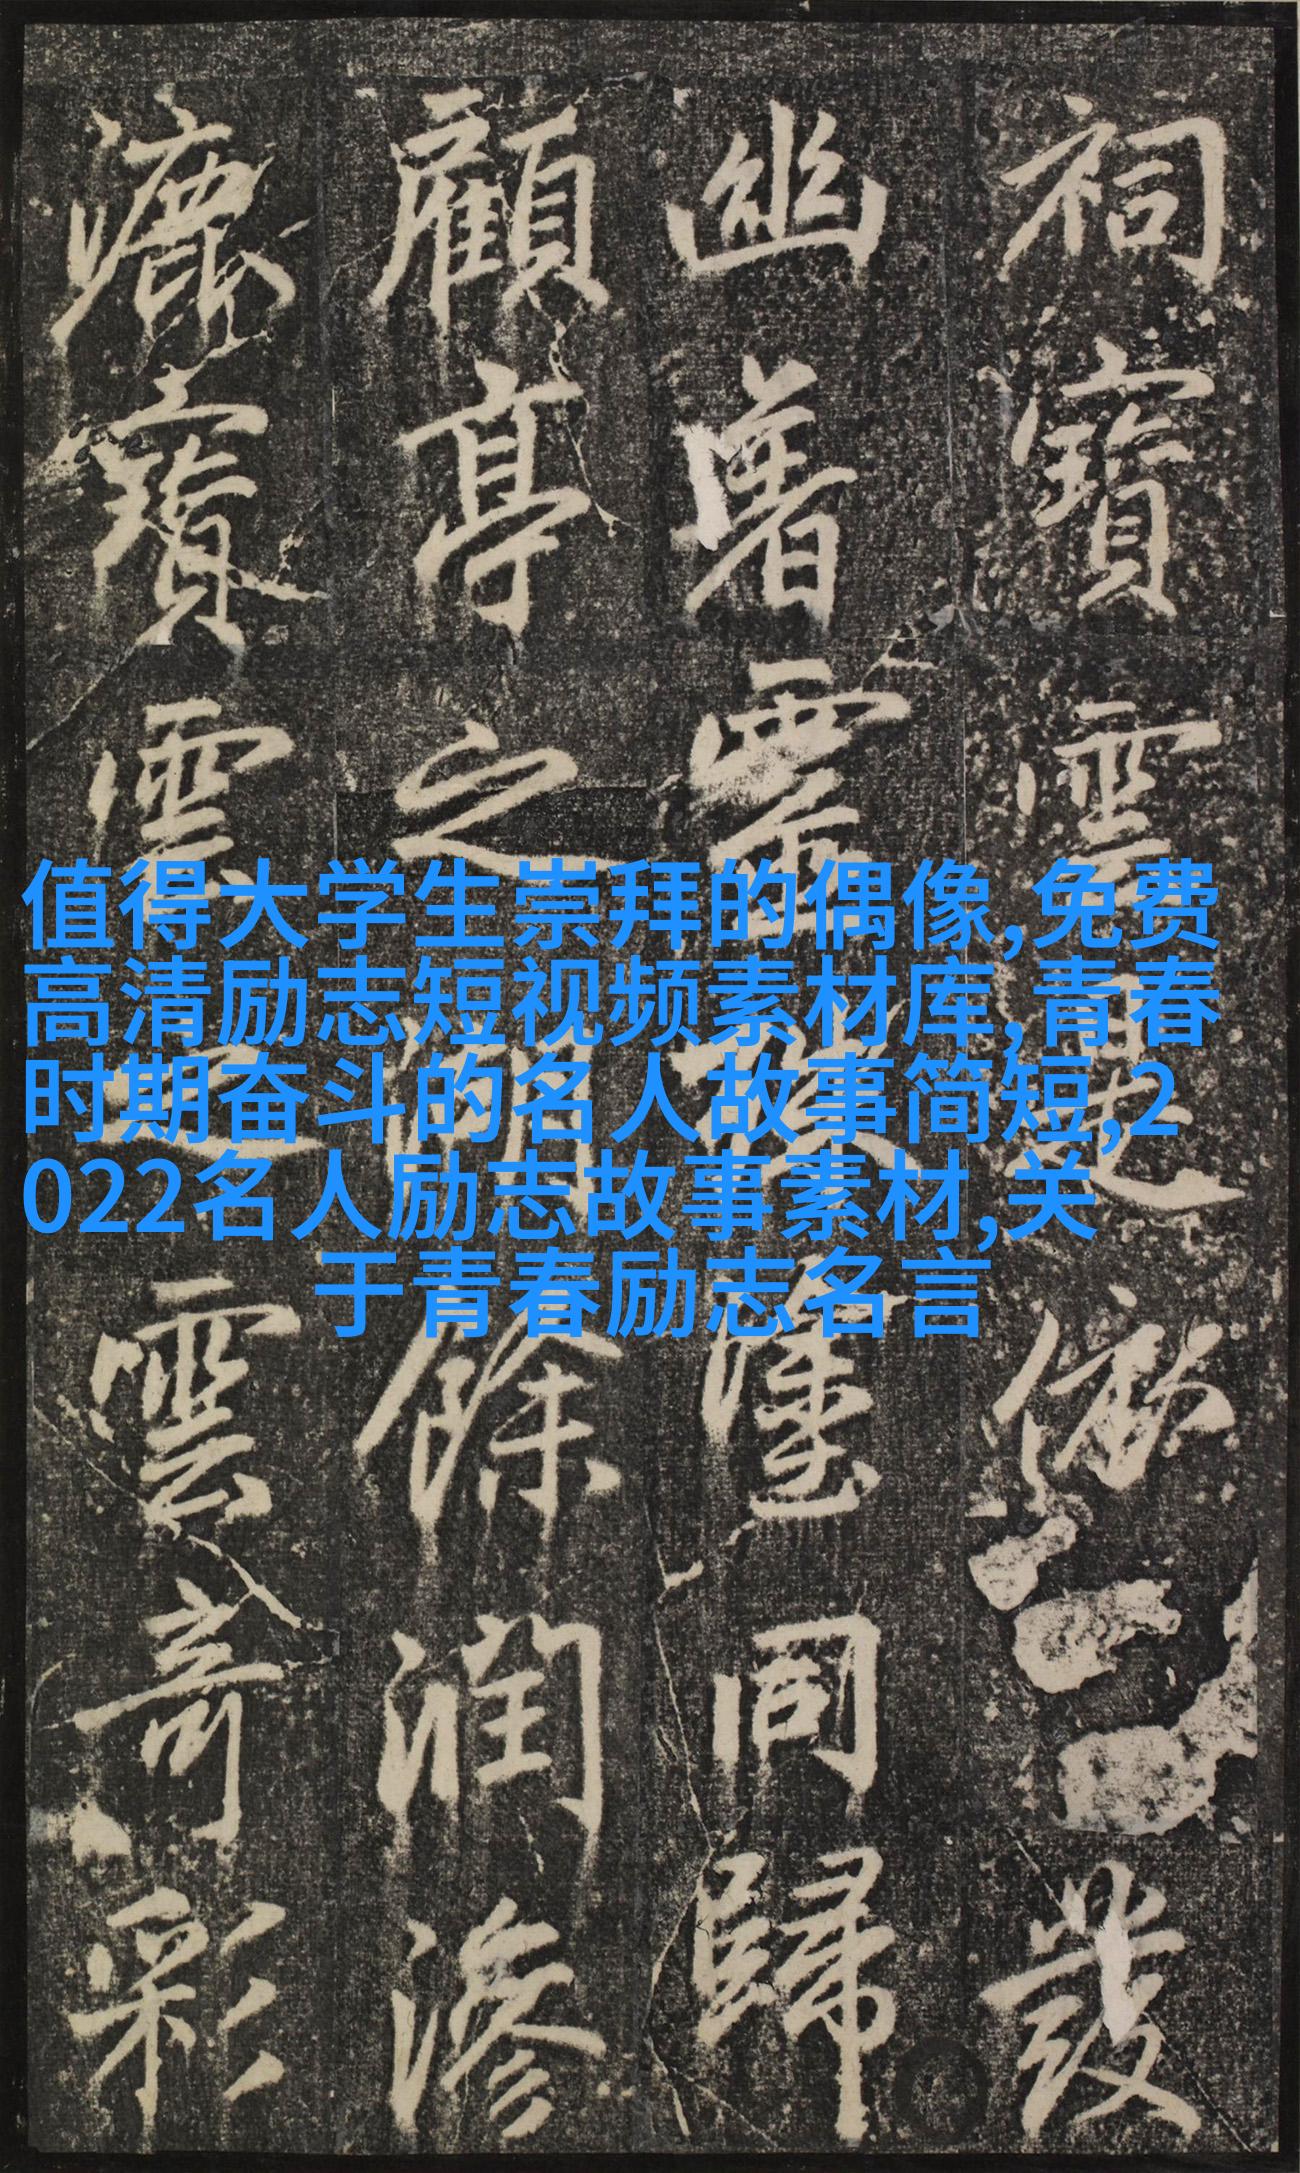 值得大学生崇拜的偶像,免费
高清励志短视频素材库,青春
时期奋斗的名人故事简短,2
022名人励志故事素材,关
于青春励志名言
祠寶雲俯發
幽署靈同歸
顧亭之餘潤滲
漉寶雲之雲奇彩